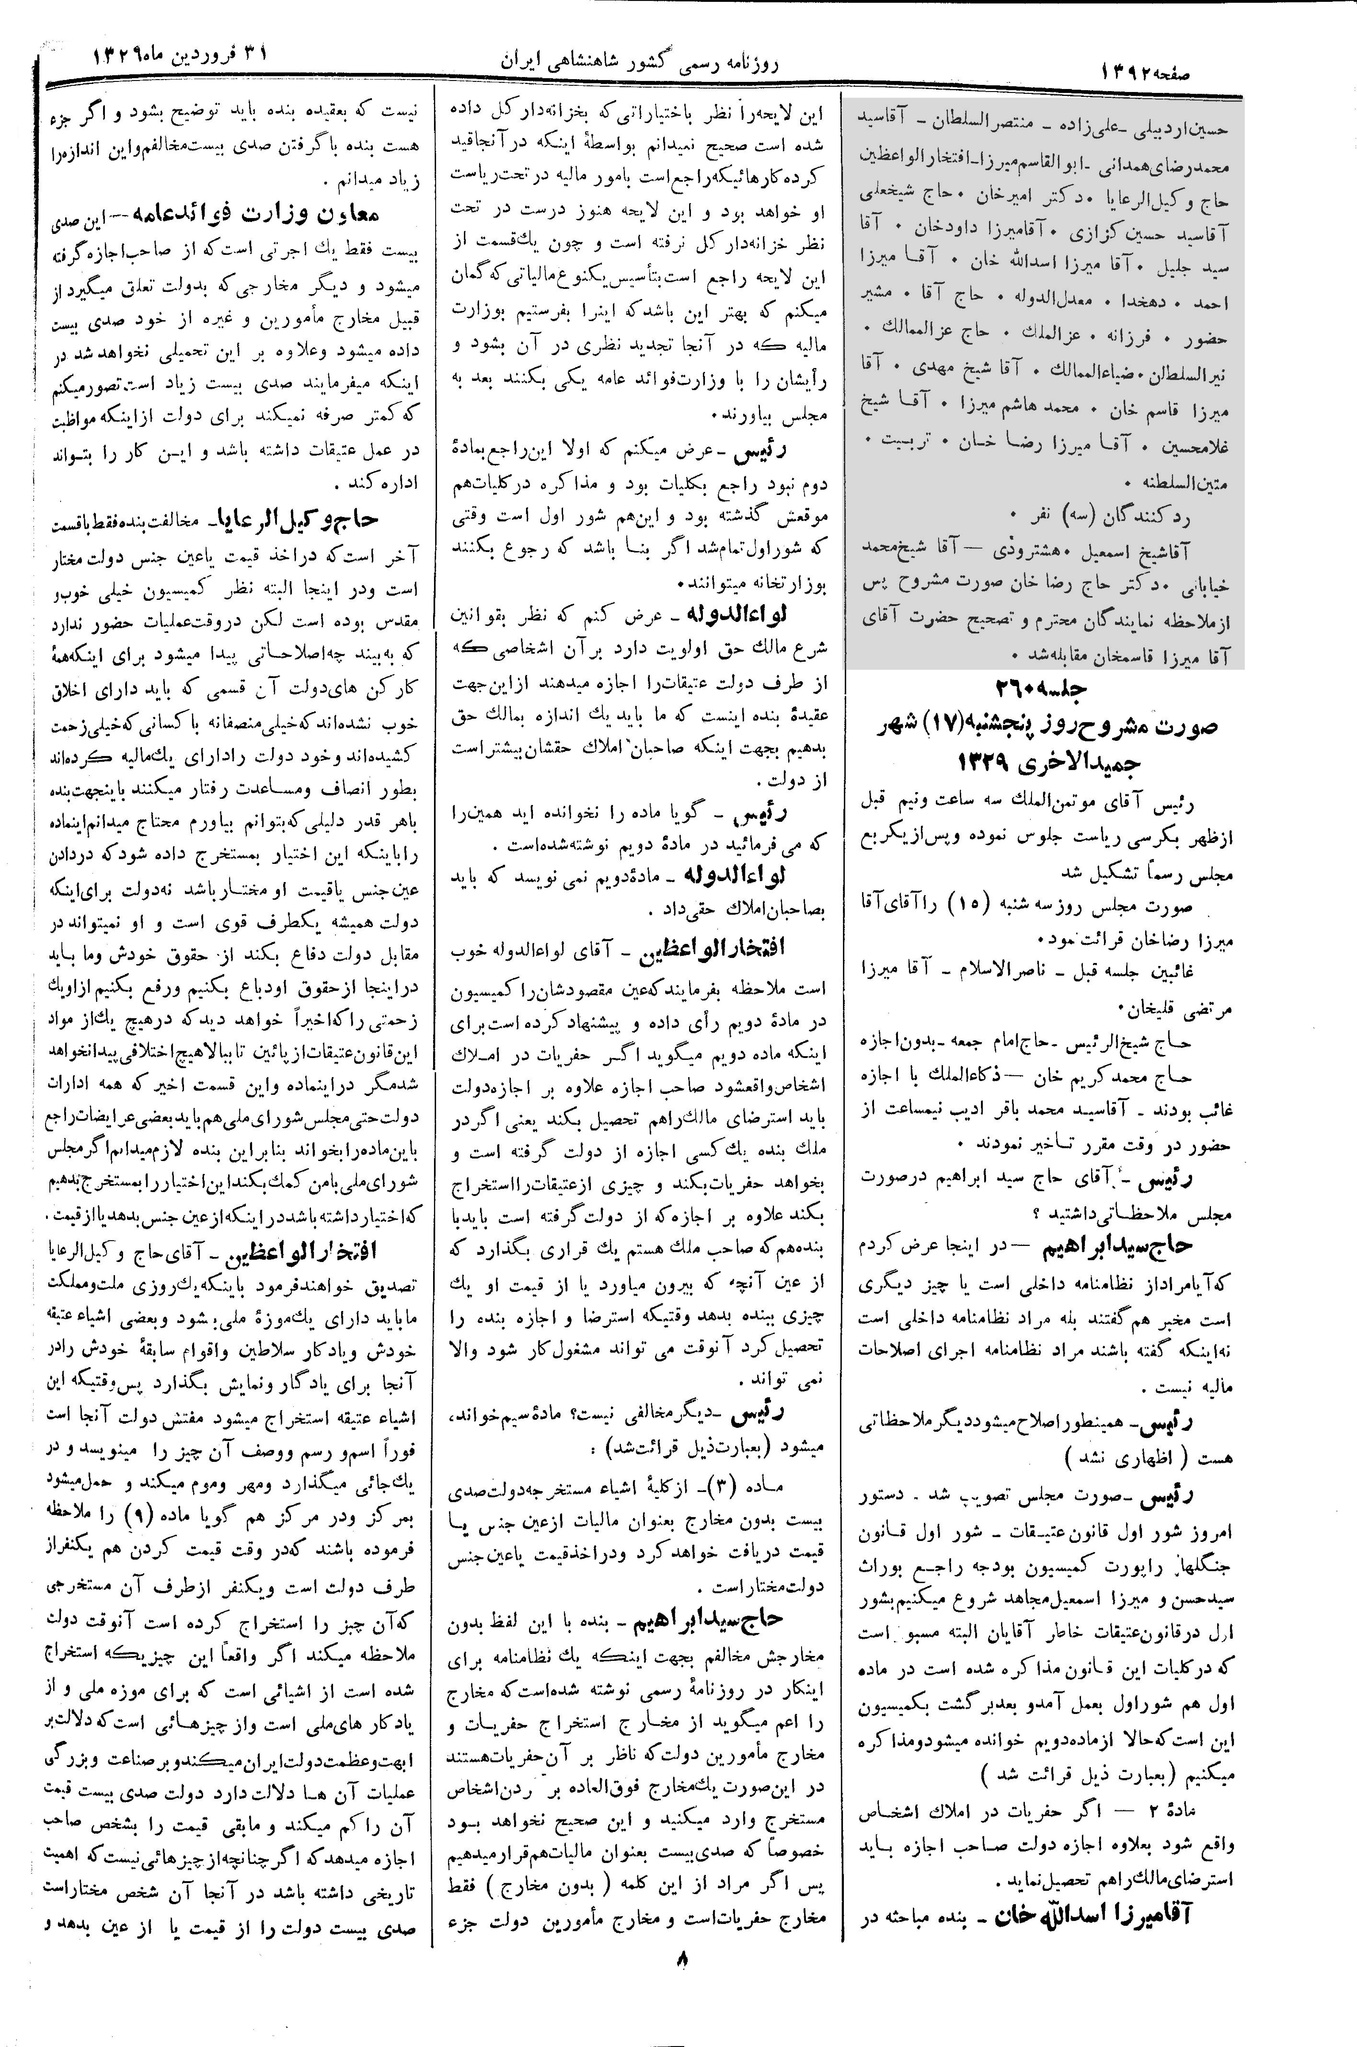 صفحه ۱۳۹۲
روزنامه رسمی کشور شاهنشاهی ایران
۳۱ فروردین ماه ۱۳۲۹
حسین اردبیلی - علی‌زاده - منتصر السلطان - آقاسید
محمدرضای همدانی - ابوالقاسم میرزا - افتخارالواعظین
حاج وکیل‌الرعایا ۰ دکتر امیرخان ۰ حاج شیخعلی
آقاسید حسین کزازی ۰ آقامیرزا داودخان ۰ آقا
سید جلیل ۰ آقا میرزا اسدالله خان ۰ آقا میرزا
احمد ۰ دهخدا ۰ معدل‌الدوله ۰ حاج آقا ۰ مشیر
حضور ۰ فرزانه ۰ عزالملك ۰ حاج عزالممالك ۰
نیرالسلطان ۰ ضیاءالممالك ۰ آقا شیخ مهدی ۰ آقا
میرزا قاسم خان ۰ محمد هاشم میرزا ۰ آقا شیخ
غلامحسین ۰ آقا میرزا رضا خان ۰ تربیت ۰
متین‌السلطنه ۰
رد کنندگان (سه) نفر ۰
آقاشیخ اسمعیل ۰ هشترودی — آقا شیخ‌محمد
خیابانی ۰ دکتر حاج رضا خان صورت مشروح پس
از ملاحظه نمایندگان محترم و تصحیح حضرت آقای
آقا میرزا قاسمخان مقابله شد ۰
جلسه ۲۶۰
صورت مشروح روز پنجشنبه (۱۷) شهر
جمیدالاخری ۱۳۲۹
رئیس آقای موتمن‌الملك سه ساعت ونیم قبل
ازظهر بکرسی ریاست جلوس نموده وپس‌ازیکربع
مجلس رسماً تشکیل شد
صورت مجلس روز سه شنبه (۱۵) را آقای آقا
میرزا رضاخان قرائت نمود۰
غائبین جلسه قبل - ناصر الاسلام - آقا میرزا
مرتضی قلیخان۰
حاج شیخ‌الرئیس - حاج‌امام جمعه - بدون‌اجازه
حاج محمد کریم خان — ذکاءالملك با اجازه
غائب بودند - آقاسید محمد باقر ادیب نیمساعت از
حضور در وقت مقرر تأخیر نمودند ۰
رئیس - آقای حاج سید ابراهیم درصورت
مجلس ملاحظاتی‌داشتید ؟
حاج سید ابراهیم — در اینجا عرض کردم
که‌آیامراداز نظامنامه داخلی است یا چیز دیگری
است مخبر هم گفتند بله مراد نظامنامه داخلی است
نه‌اینکه گفته باشند مراد نظامنامه اجرای اصلاحات
مالیه نیست .
رئیس - همینطور اصلاح میشود دیگر ملاحظاتی
هست ( اظهاری نشد )
رئیس - صورت مجلس تصویب شد . دستور
امروز شور اول قانون عتیقات - شور اول قانون
جنگلها، راپورت کمیسیون بودجه راجع بوراث
سیدحسن و میرزا اسمعیل مجاهد شروع میکنیم بشور
اول در قانون عتیقات خاطر آقایان البته مسبوق است
که درکلیات این قانون مذاکره شده است در ماده
اول هم شوراول بعمل آمدو بعدبرگشت بکمیسیون
این است‌که‌حالا ازماده‌دویم خوانده میشودومذاکره
میکنیم (بعبارت ذیل قرائت شد )
مادهٔ ۲ — اگر حفریات در املاك اشخاص
واقع شود بعلاوه اجازه دولت صاحب اجازه باید
استرضای مالك راهم تحصیل نماید .
آقامیرزا اسدالله خان - بنده مباحثه در
این لایحه را نظر باختیاراتی که بخزانه‌دار کل داده
شده است صحیح نمیدانم بواسطهٔ اینکه در آنجا قید
کرده‌کارهائیکه‌راجع‌است بامور مالیه درتحت‌ریاست
او خواهد بود و این لایحه هنوز درست در تحت
نظر خزانه‌دار کل نرفته است و چون یك‌قسمت از
این لایحه راجع است بتأسیس یکنوع مالیاتی که گمان
میکنم که بهتر این باشدکه اینرا بفرستیم بوزارت
مالیه که در آنجا تجدید نظری در آن بشود و
رأیشان را با وزارت‌فوائد عامه یکی بکنند بعد به
مجلس بیاورند۰
رئیس - عرض میکنم که اولا این راجع بمادهٔ
دوم نبود راجع بکلیات بود و مذاکره درکلیات‌هم
موقعش گذشته بود و این‌هم شور اول است وقتی
که شوراول‌تمام‌شد اگر بنا باشد که رجوع بکنند
بوزارتخانه میتوانند۰
لواءالدوله - عرض کنم که نظر بقوانین
شرع مالك حق اولویت دارد برآن اشخاصی که
از طرف دولت عتیقات‌را اجازه میدهند ازاین‌جهت
عقیدهٔ بنده اینست که ما باید یك اندازه بمالك حق
بدهیم بجهت اینکه صاحبان املاك حقشان بیشتراست
از دولت .
رئیس - گویا ماده را نخوانده اید همین‌را
که می فرمائید در مادهٔ دویم نوشته‌شده‌است .
لواءالدوله - مادهٔ‌دویم نمی نویسد که باید
بصاحبان‌املاك حقی‌داد .
افتخارالواعظین - آقای لواءالدوله خوب
است ملاحظه بفرمایندکه‌عین مقصودشان‌را کمیسیون
در مادهٔ دویم رأی داده و پیشنهاد کرده است برای
اینکه ماده دویم میگوید اگر حفریات در املاك
اشخاص‌واقعشود صاحب اجازه علاوه بر اجازه‌دولت
باید استرضای مالك‌راهم تحصیل بکند یعنی اگردر
ملك بنده یك‌کسی اجازه از دولت گرفته است و
بخواهد حفریات‌بکند و چیزی ازعتیقات‌رااستخراج
بکند علاوه بر اجازه‌که از دولت‌گرفته است باید با
بنده‌هم‌که صاحب ملك هستم یك قراری بگذارد که
از عین آنچه که بیرون میاورد یا از قیمت او یك
چیزی ببنده بدهد وقتیکه استرضا و اجازه بنده را
تحصیل‌کرد آنوقت می تواند مشغول‌کار شود والا
نمی تواند .
رئیس - دیگر مخالفی نیست؟ مادهٔ سیم‌خواند،
میشود (بعبارت ذیل قرائت‌شد) :
ماده (۳)- ازکلیهٔ اشیاء مستخرجه‌دولت‌صدی
بیست بدون مخارج بعنوان مالیات ازعین جنس یا
قیمت دریافت خواهدکرد ودراخذقیمت یاعین‌جنس
دولت‌مختاراست .
حاج سید ابراهیم - بنده با این لفظ بدون
مخارجش مخالفم بجهت اینکه یك نظامنامه برای
اینکار در روزنامهٔ رسمی نوشته شده‌است‌که مخارج
را اعم میگوید از مخارج استخراج حفریات و
مخارج مأمورین دولت‌که ناظر بر آن‌حفریات‌هستند
در این‌صورت یك‌مخارج فوق‌العاده بر ردن‌اشخاص
مستخرج وارد میکنید و این صحیح نخواهد بود
خصوصاً که صدی‌بیست بعنوان مالیات‌هم‌قرارمیدهیم
پس اگر مراد از این کلمه ( بدون مخارج ) فقط
مخارج حفریات‌است و مخارج مأمورین دولت جزء
نیست که بعقیده بنده باید توضیح بشود و اگر جزء
هست بنده باگرفتن صدی بیست‌مخالفم‌واین اندازه‌را
زیاد میدانم .
معاون وزارت فوائدعامه — این صدی
بیست فقط یك اجرتی است‌که از صاحب‌اجازه‌گرفته
میشود و دیگر مخارجی که بدولت تعلق میگیرد از
قبیل مخارج مأمورین و غیره از خود صدی بیست
داده میشود وعلاوه بر این تحمیلی نخواهد شد در
اینکه میفرمایند صدی بیست زیاد است‌تصورمیکنم
که کمتر صرفه نمیکند برای دولت ازاینکه مواظبت
در عمل عتیقات داشته باشد و این کار را بتواند
اداره کند .
حاج وکیل‌الرعایا- مخالفت‌بنده‌فقط باقسمت
آخر است‌که دراخذ قیمت یاعین جنس دولت مختار
است ودر اینجا البته نظر کمیسیون خیلی خوب‌و
مقدس بوده است لکن دروقت‌عملیات حضور ندارد
که به‌بیند چه‌اصلاحاتی پیدا میشود برای اینکه‌همهٔ
کارکن های‌دولت آن قسمی که باید دارای اخلاق
خوب نشده‌اندکه‌خیلی‌منصفانه باکسانی‌که‌خیلی‌زحمت
کشیده‌اند وخود دولت رادارای یك‌مالیه کرده‌اند
بطور انصاف ومساعدت رفتار میکنند باینجهت‌بنده
باهر قدر دلیلی‌که‌بتوانم بیاورم محتاج میدانم‌اینماده
راباینکه این اختیار بمستخرج داده شودکه دردادن
عین‌جنس یاقیمت او مختارباشد نه‌دولت برای‌اینکه
دولت همیشه یکطرف قوی است و او نمیتواند در
مقابل دولت دفاع بکند از حقوق خودش وما باید
دراینجا ازحقوق اودباع بکنیم ورفع بکنیم‌ازاویك
زحمتی راکه‌اخیراً خواهد دیدکه درهیچ یك‌از مواد
این‌قانون‌عتیقات‌از پائین تابیالاهیچ اختلافی‌پیدانخواهد
شدمگر دراینماده واین قسمت اخیر که همه ادارات
دولت‌حتی‌مجلس‌شورای‌ملی‌هم‌بایدبعضی‌عرایضات‌راجع
باین‌ماده‌رابخواند بنابراین بنده لازم‌میدانم‌اگرمجلس
شورای‌ملی‌بامن‌کمك‌بکنداین‌اختیاررابمستخرج‌بدهیم
که‌اختیارداشته‌باشددراینکه‌ازعین‌جنس‌بدهدیاازقیمت.
افتخارالواعظین - آقای‌حاج وکیل‌الرعایا
تصدیق خواهندفرمود باینکه‌یك‌روزی ملت‌ومملکت
ماباید دارای یك‌موزهٔ ملی‌بشود وبعضی اشیاء عتیقه
خودش ویادکار سلاطین واقوام سابقهٔ خودش رادر
آنجا برای یادگار ونمایش بگذارد پس‌وقتیکه این
اشیاء عتیقه استخراج میشود مفتش دولت آنجا است
فوراً اسم‌و رسم ووصف آن چیز را مینویسد و در
یك‌جائی میگذارد ومهر وموم میکند و حمل‌میشود
بمرکز ودر مرکز هم گویا ماده (۹) را ملاحظه
فرموده باشند که‌در وقت قیمت کردن هم یکنفراز
طرف دولت است ویکنفر ازطرف آن مستخرجی
که‌آن چیز را استخراج کرده است آنوقت دولت
ملاحظه میکند اگر واقعاً این چیزیکه استخراج
شده است از اشیائی است که برای موزه ملی و از
یادکار های‌ملی است واز چیزهائی است‌که دلالت‌بر
ابهت‌وعظمت‌دولت‌ایران‌میکندوبرصناعت وبزرگی
عملیات آن ها دلالت دارد دولت صدی بیست قیمت
آن راکم میکند و مابقی قیمت را بشخص صاحب
اجازه میدهدکه اگرچنانچه‌ازچیزهائی‌نیست‌که اهمیت
تاریخی داشته باشد در آنجا آن شخص مختاراست
صدی بیست دولت را از قیمت یا از عین بدهد و
۸